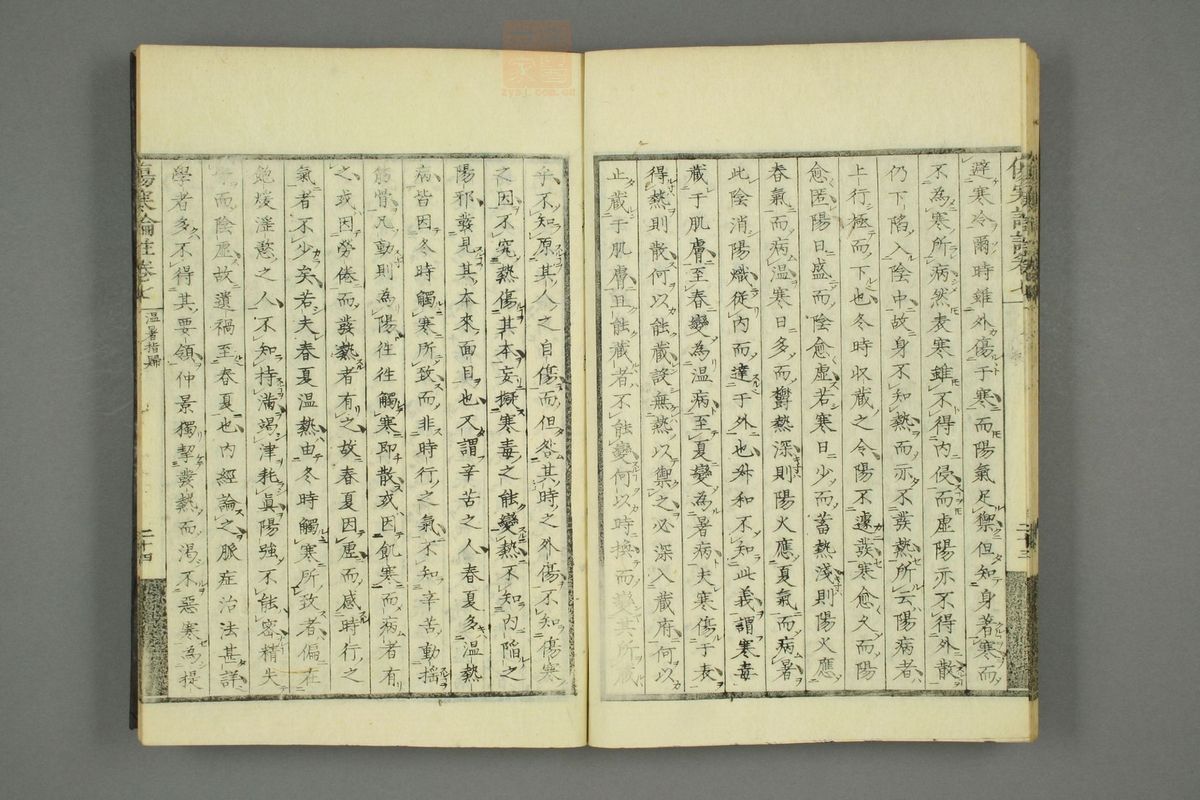 避寒冷爾時雖外傷于寒而陽氣足禦但知身著寒而
不為寒所病然表寒雖不得内侵而虛陽亦不得外散
仍下陷入陰中故身不知熱而亦不發熱所云陽病者
上行極而下也冬時收藏之令陽不遽發寒愈久而陽
愈匿陽日盛而陰愈虛若寒日少而蓄熱淺則陽火應
春氣而病溫寒日多而鬱熱深則陽火應夏氣而病暑
此陰消陽熾從内而達于外也叔和不知此義謂寒毒
藏于肌膚至春變為溫病至夏變為暑病夫寒傷于表
得熱則散何以能藏該無熱以禦之必深入藏府何以
止藏于肌膚且能藏者不能變何以時換而變其所
傷寒論註卷七
二十三
乎不知原其人之自傷而但咎其時之外傷不知傷寒
之因不究熱傷其本妄擬寒毒之能變熱不知内陷之
陽邪發見其本來面目也又謂辛苦之人春夏多溫熱
病皆因冬時觸寒所致而非時行之氣不知辛苦動搖
筋骨凡動則為陽往往觸寒即散或因飢寒而病者有
之或因勞倦而發熱者有之故春夏因虛而感時行之
氣者不少矣若夫春夏溫熱由冬時觸寒所致者偏在
飽煖淫慾之人不知持滿竭津耗眞陽強不能密精失
而陰虛故遺禍至春夏也内經論之脈症治法甚詳
學者多不得其要領仲景獨挈發熱而渴不惡寒為提
傷寒論註卷七
溫暑指歸
二十四
zysj.com.cn